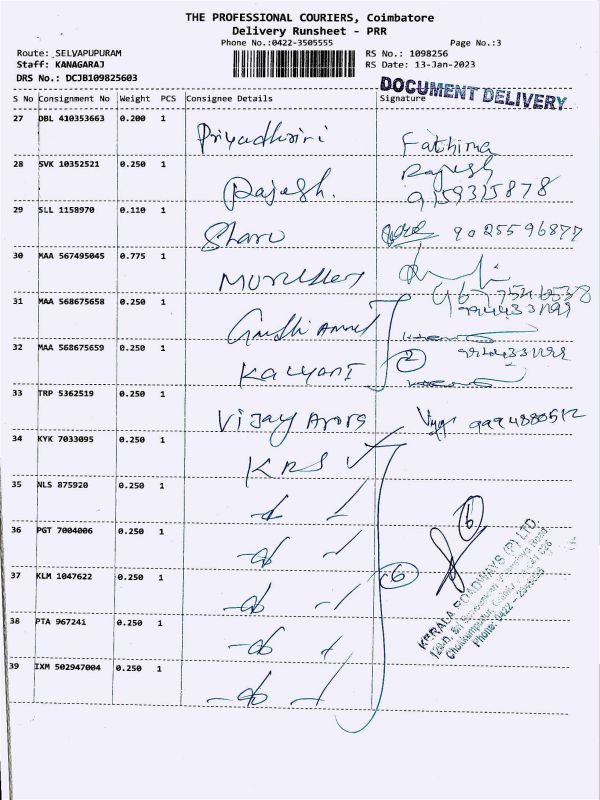 THE PROFESSIONAL COURIERS, Coimbatore
Delivery Runsheet - PRR
Phone No.:0422-3505555
Page No.:3
Route: SELVAPUPURAM
RS No.: 1098256
Staff: KANAGARAJ
RS Date: 13-Jan-2023
DRS No.: DCJB109825603
DOCUMENT DELIVERY
S No Consignment No Weight PCS Consignee Details Signature
27 DBL 410353663 0.200 1 Priyadharini Fathima
28 SVK 10352521 0.250 1 Rajesh. Rajesh
9159315878
29 SLL 1158970 0.110 1 Sharu 9025596877
30 MAA 567495045 0.775 1
31 MAA 568675658 0.250 1
32 MAA 568675659 0.250 1 Kalyani 2
33 TRP 5362519 0.250 1 Vijay Arora 9994880512
34 KYK 7033095 0.250 1 KRS
35 NLS 875920 0.250 1
36 PGT 7004006 0.250 1 -do
37 KLM 1047622 0.250 1 -do 6
38 PTA 967241 0.250 1 -do
39 IXM 502947004 0.250 1 -do
6
KERALA ROADWAYS (P) LTD.
Phone: 0422 -